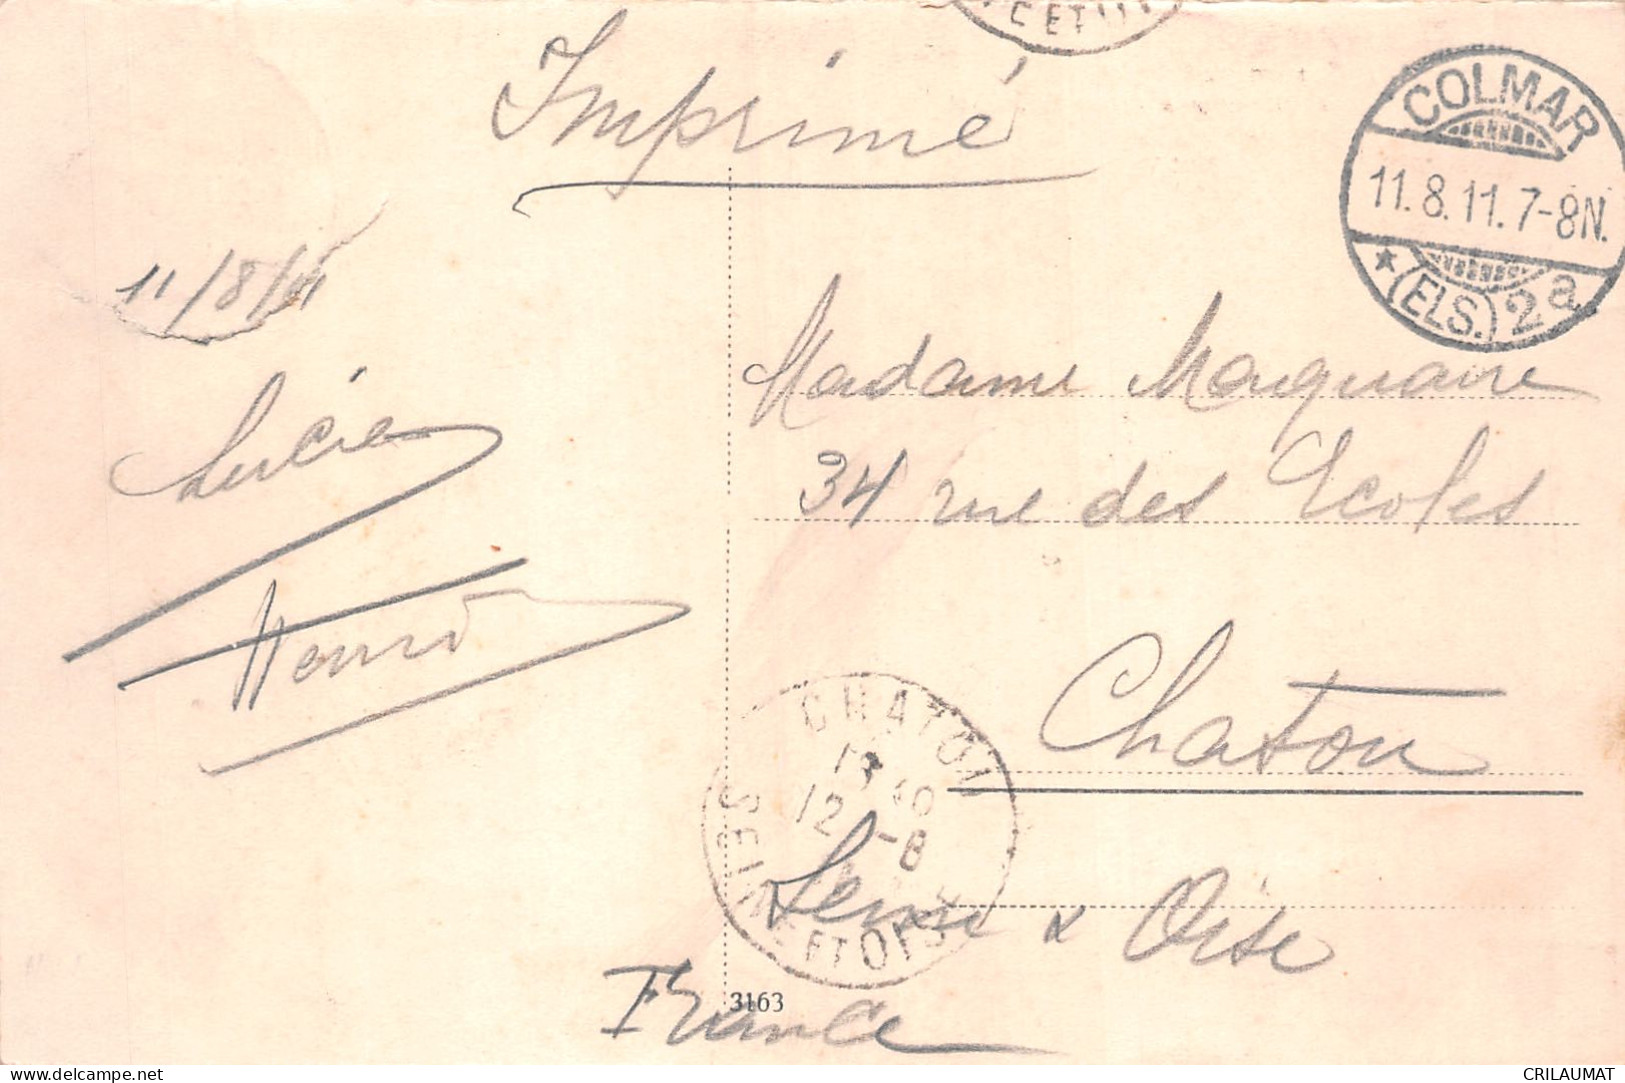 C ET
Imprimé
COLMAR
11.8.11.7-8N.
★ (ELS.) 2a
11/8/11
Madame Maquaire
34 rue des Ecoles
Lucie
Henri
Chatou
CHATOU
12 -8
SEINE ET OISE
Seine & Oise
France
3163
delcampe.net
CRILAUMAT